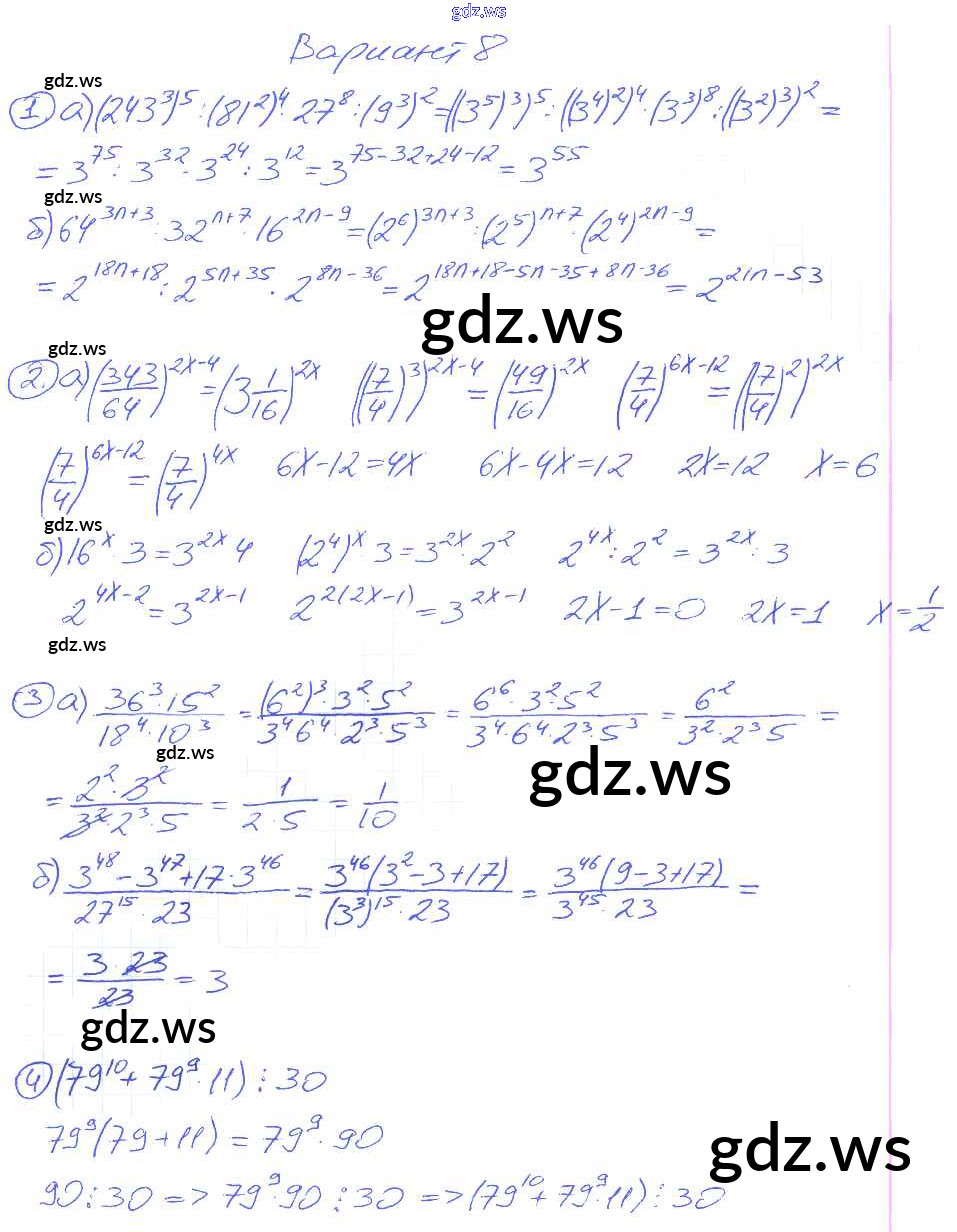 gdz.ws
Вариант 8
gdz.ws
① а) (243³)⁵ : (81²)⁴ · 27⁸ : (9³)² = ((3⁵)³)⁵ : ((3⁴)²)⁴ · (3³)⁸ : ((3²)³)² =
= 3⁷⁵ : 3³² · 3²⁴ : 3¹² = 3^(75-32+24-12) = 3⁵⁵
gdz.ws
б) 64^(3n+3) : 32^(n+7) · 16^(2n-9) = (2⁶)^(3n+3) : (2⁵)^(n+7) · (2⁴)^(2n-9) =
= 2^(18n+18) : 2^(5n+35) · 2^(8n-36) = 2^(18n+18-5n-35+8n-36) = 2^(21n-53)
gdz.ws
gdz.ws
② а) (343/64)^(2x-4) = (3 1/16)^(2x) ((7/4)³)^(2x-4) = (49/16)^(2x) (7/4)^(6x-12) = ((7/4)²)^(2x)
(7/4)^(6x-12) = (7/4)^(4x) 6x-12=4x 6x-4x=12 2x=12 x=6
gdz.ws
б) 16^x · 3 = 3^(2x) · 4 (2⁴)^x · 3 = 3^(2x) · 2² 2^(4x) : 2² = 3^(2x) : 3
2^(4x-2) = 3^(2x-1) 2^(2(2x-1)) = 3^(2x-1) 2x-1=0 2x=1 x=1/2
gdz.ws
③ а) (36³·15²)/(18⁴·10³) = ((6²)³·3²·5²)/(3⁴6⁴·2³·5³) = (6⁶·3²·5²)/(3⁴·6⁴·2³·5³) = 6²/(3²·2³·5) =
gdz.ws
gdz.ws
= (2²·3²)/(3²·2³·5) = 1/(2·5) = 1/10
б) (3⁴⁸-3⁴⁷+17·3⁴⁶)/(27¹⁵·23) = (3⁴⁶(3²-3+17))/((3³)¹⁵·23) = (3⁴⁶(9-3+17))/(3⁴⁵·23) =
= (3·23)/23 = 3
gdz.ws
④ (79¹⁰+79⁹·11)⋮30
79⁹(79+11) = 79⁹·90
gdz.ws
90⋮30 => 79⁹·90⋮30 => (79¹⁰+79⁹·11)⋮30